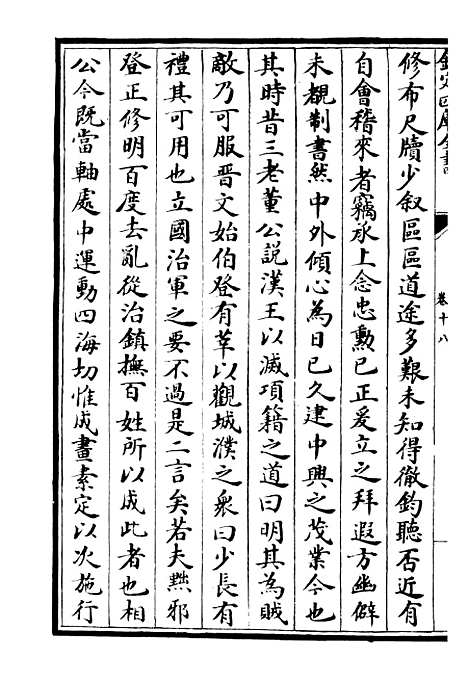 欽定四庫全書
卷十八
修布尺牘少叙區區道途多艱未知得徹鈞聽否近有
自會稽來者竊承上念忠勲已正爰立之拜遐方幽僻
未覩制書然中外傾心為日已久建中興之茂業今也
其時昔三老董公説漢王以滅項籍之道曰明其為賊
敵乃可服晋文始伯登有莘以觀城濮之衆曰少長有
禮其可用也立國治軍之要不過是二言矣若夫黜邪
登正修明百度去亂從治鎮撫百姓所以成此者也相
公今既當軸處中運動四海切惟成畫素定以次施行